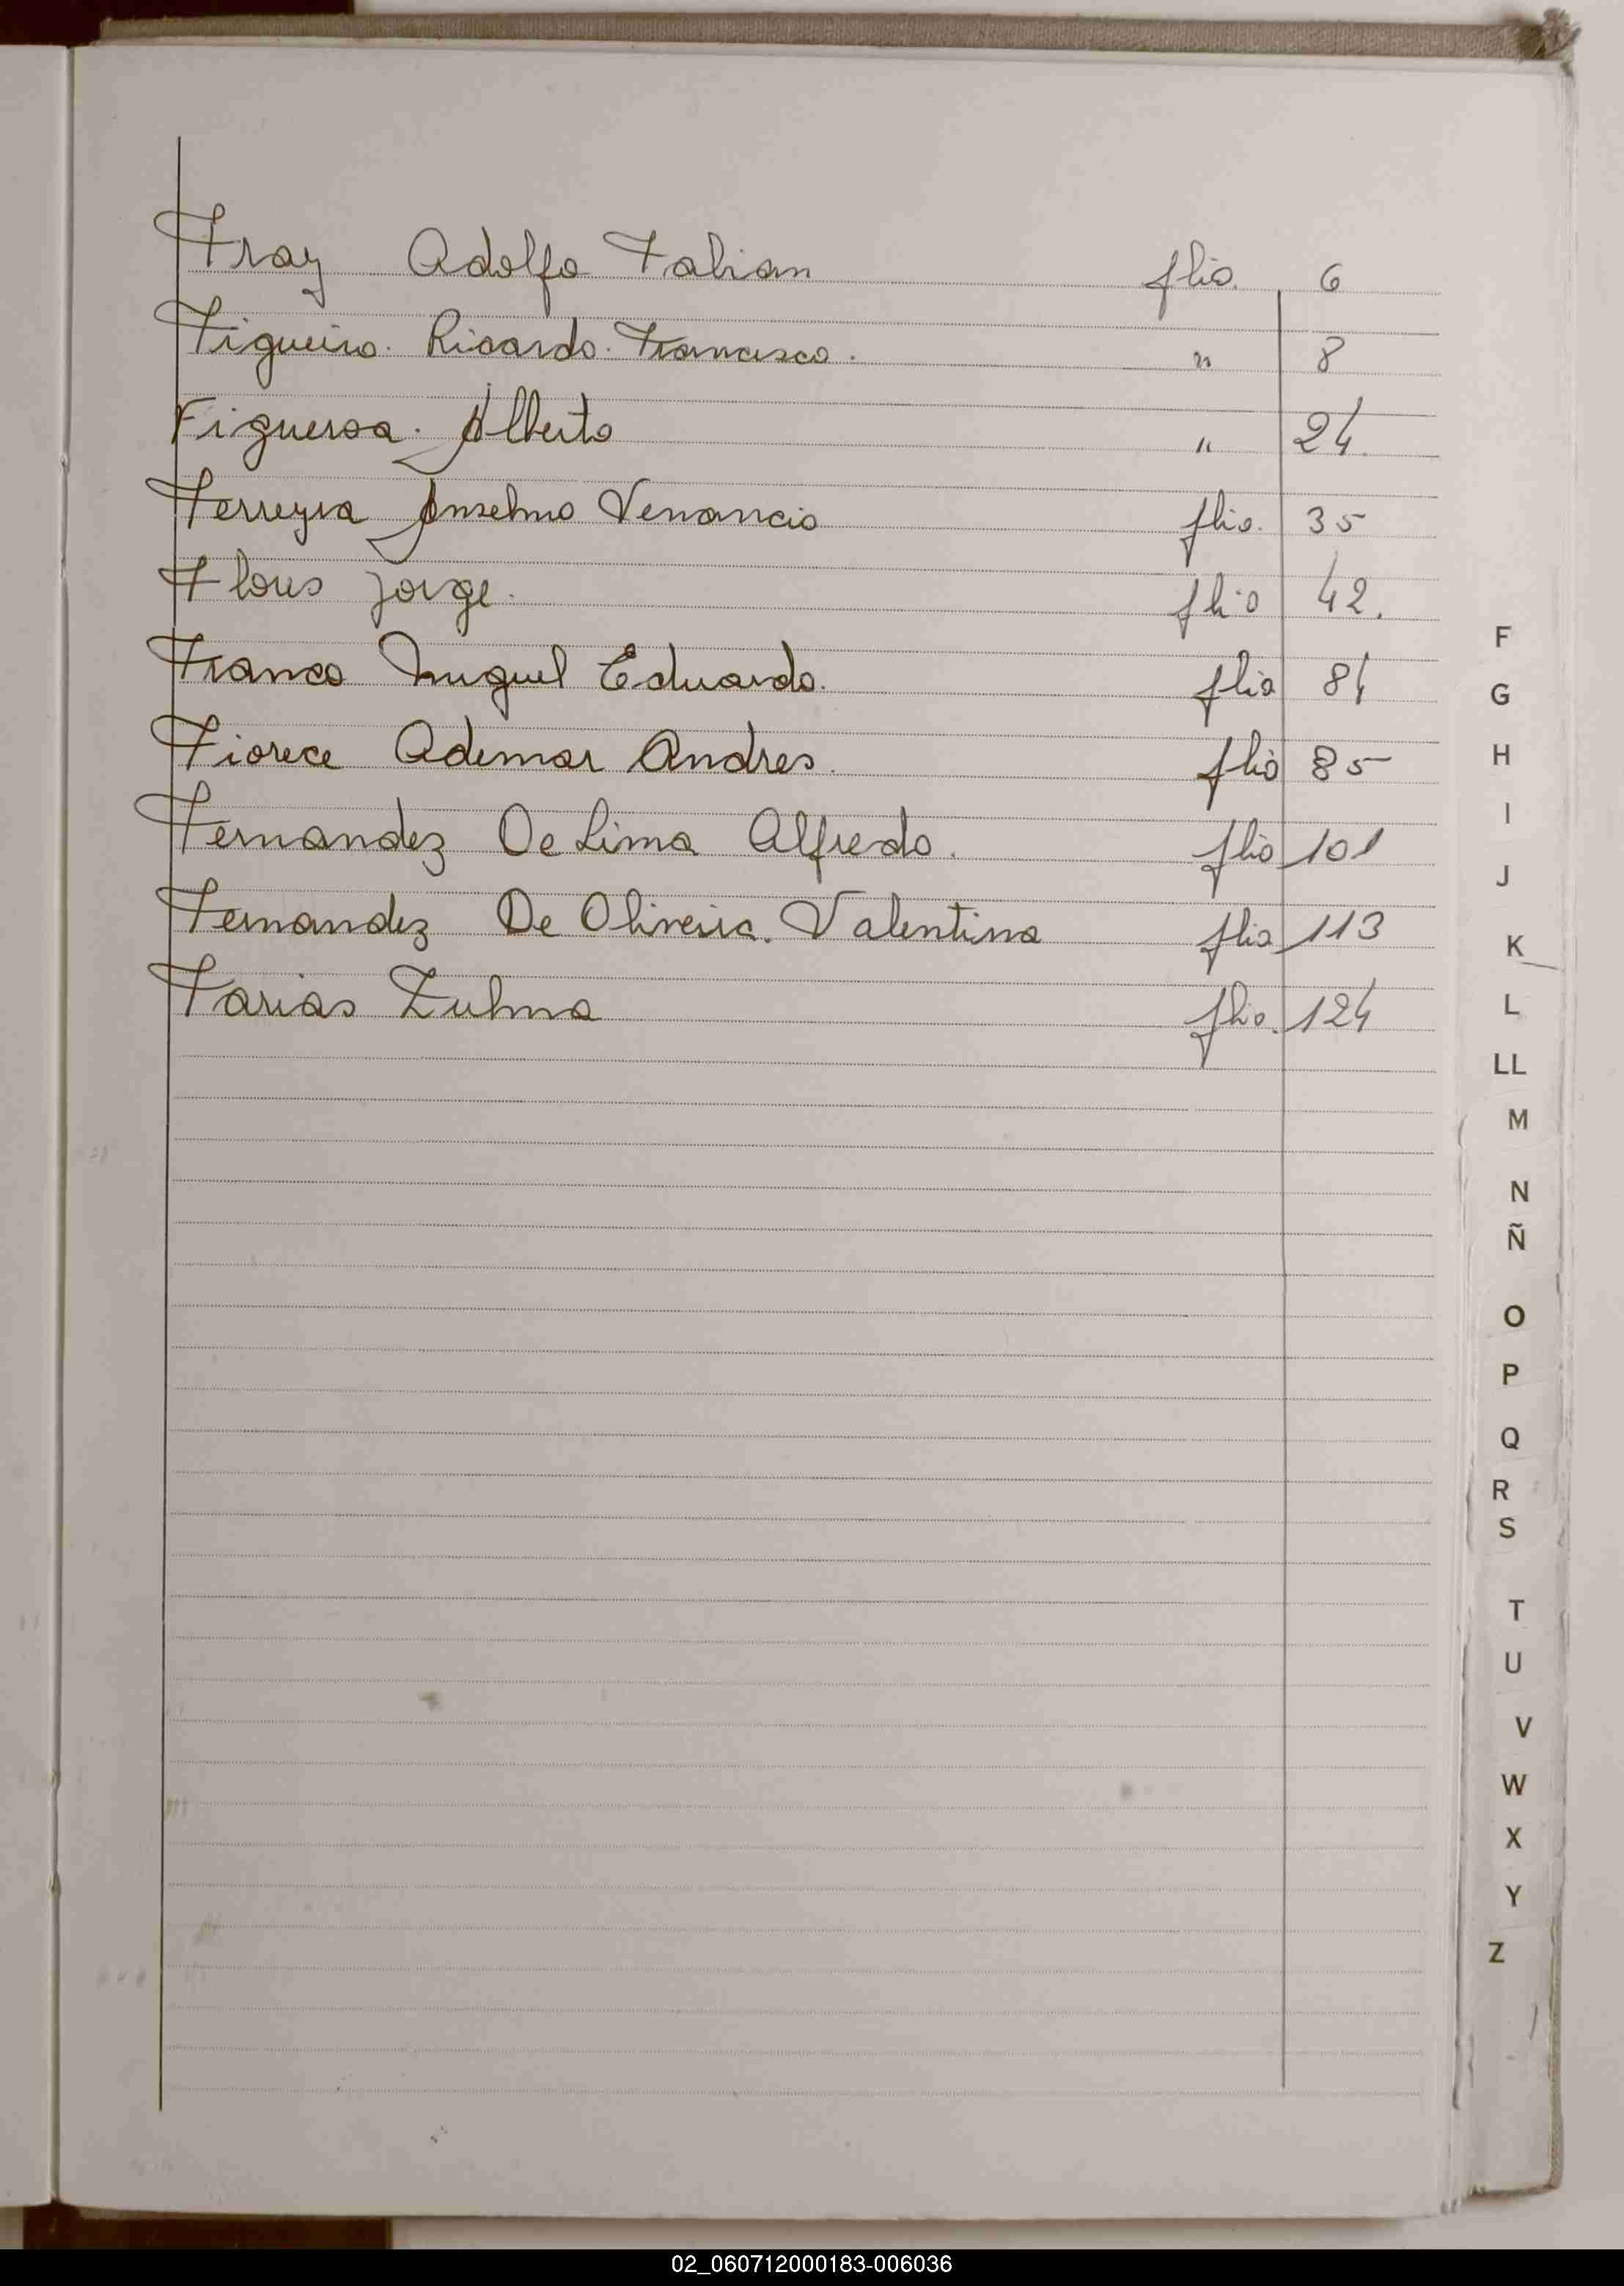 Fray Adolfo Fabian flio. 6
Figueiro. Ricardo. Francisco. " 8
Figueroa. Alberto " 24
Ferreyra Anselmo Venancio flio. 35
Flores Jorge. flio 42.
Franco Miguel Eduardo. flio 84
Fiorece Ademar Andres. flio 85
Fernandez De Lima Alfredo. flio 101
Fernandez De Oliveira. Valentina flio 113
Farias Zulma flio. 124
F
G
H
I
J
K
L
LL
M
N
Ñ
O
P
Q
R
S
T
U
V
W
X
Y
Z
02_060712000183-006036